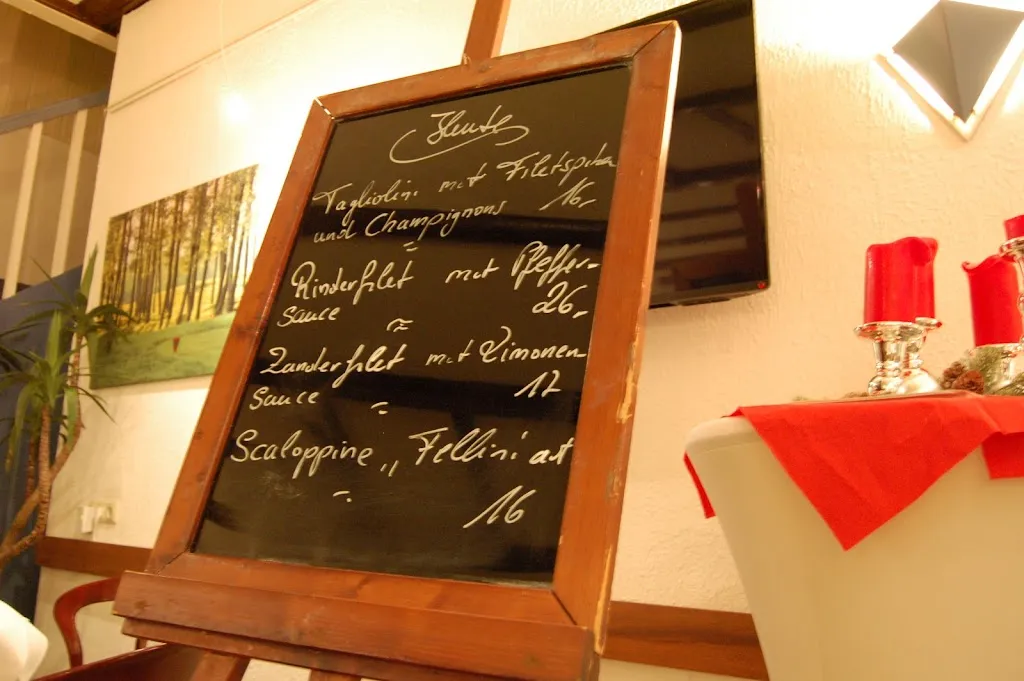 Heute
Tagliolini mit Filetspitzen
und Champignons 16,-
Rinderfilet mit Pfeffer-
Sauce 26,-
Zanderfilet mit Zimonen
Sauce 17
Scaloppine „Fellini art
16